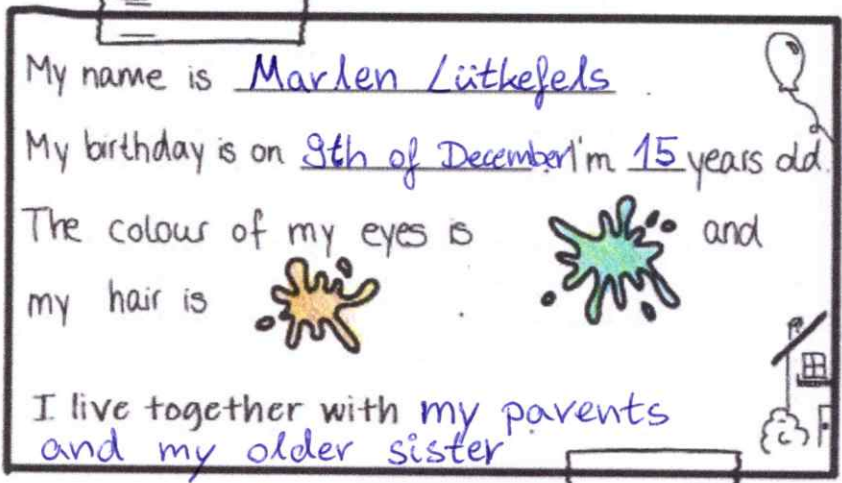 My name is Marlen Lütkefels.
My birthday is on 9th of December I'm 15 years old.
The colour of my eyes is and
my hair is .
I live together with my parents
and my older sister